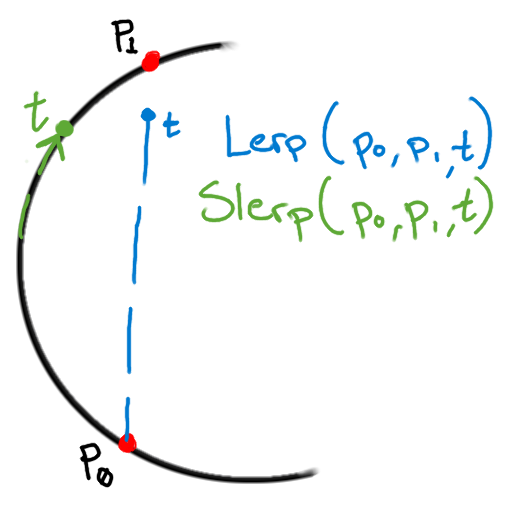 P1
t
t
Lerp(p0,p1,t)
Slerp(p0,p1,t)
P0